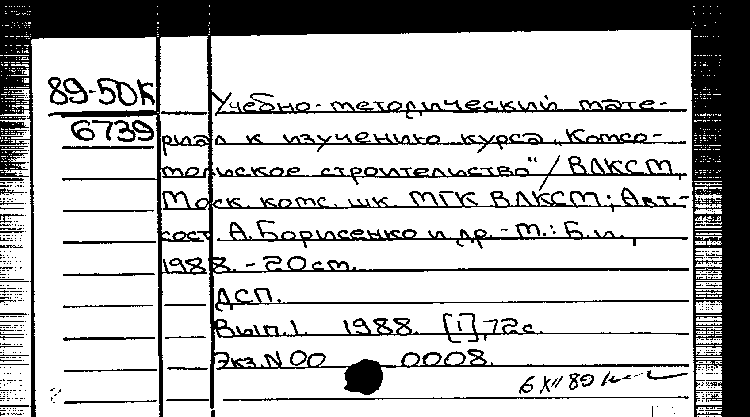 89-50К
6739
Учебно-методический мате-
риал к изучению курса „Комсо-
мольское строительство" / ВЛКСМ,
Моск. комс. шк. МГК ВЛКСМ; Авт.-
сост. А. Борисенко и др. - М.: Б.и.,
1988. - 20 см.
ДСП.
Вып. 1. 1988. [1], 72 с.
Экз. N 00 0008.
6 XII 89